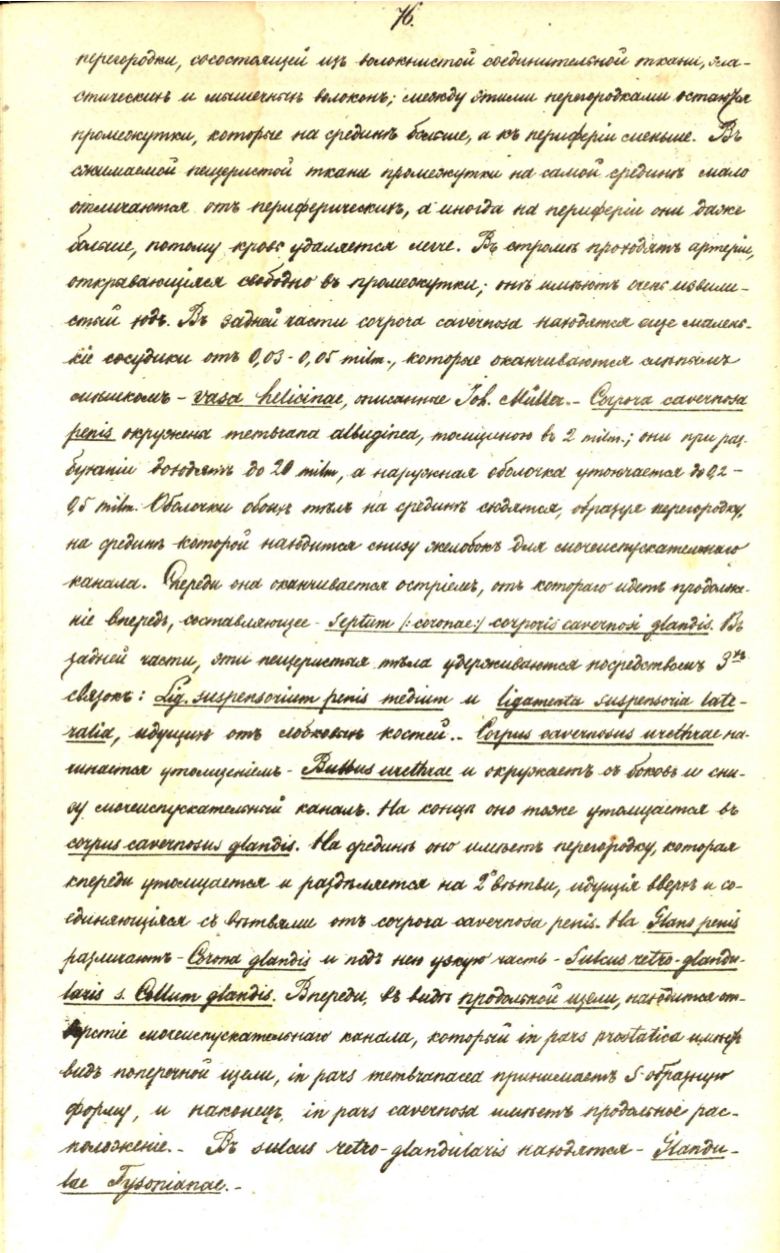 76.
перегородки, сосостоящей изъ волокнистой соединительной ткани, эла-
стическихъ и мышечныхъ волоконъ; между этими перегородками остаются
промежутки, которые на срединѣ больше, а къ периферіи меньше. Въ
сжимаемой пещеристой ткани промежутки на самой срединѣ мало
отличаются отъ периферическихъ, а иногда на периферіи они даже
больше, потому кровь удаляется легче. Въ стромѣ проходятъ артеріи,
открывающіяся свободно въ промежутки; онѣ имѣютъ очень извили-
стый ходъ. Въ задней части corpora cavernosa находятся еще малень-
кіе сосудики отъ 0,03-0,05 milm., которые оканчиваются слѣпымъ
мѣшкомъ - vasa helicinae, описанные Joh. Müller. - Corpora cavernosa
penis окружена membrana albuginea, толщиною въ 2 milm.; они при раз-
буханіи доходятъ до 20 milm, а наружная оболочка утончается до 0,2-
0,5 milm. Оболочки обоихъ тѣлъ на срединѣ сходятся, образуя перегородку,
на срединѣ которой находится снизу желобокъ для мочеиспускательнаго
канала. Спереди она оканчивается остріемъ, отъ котораго идетъ продолже-
ніе впередъ, составляющее - Septum /:coronae:/ corporis cavernosi glandis. Въ
задней части, эти пещеристыя тѣла удерживаются посредствомъ 3хъ
связокъ: Lig. suspensorium penis medium и ligamenta suspensoria late-
ralia, идущихъ отъ лобковыхъ костей. - Corpus cavernosus urethrae на-
чинается утолщеніемъ - Bulbus urethrae и окружаетъ съ боковъ и сни-
зу мочеиспускательный каналъ. На концѣ оно тоже утолщается въ
corpus cavernosus glandis. На срединѣ оно имѣетъ перегородку, которая
кпереди утолщается и раздѣляется на 2 вѣтви, идущія вверхъ и со-
единяющіяся съ вѣтвями отъ corpora cavernosa penis. На Glans penis
различаютъ - Corona glandis и подъ нею узкую часть - Sulcus retro-glandu-
laris s. Collum glandis. Впереди, въ видѣ продольной щели, находится от-
верстіе мочеиспускательнаго канала, который in pars prostatica имѣетъ
видъ поперечной щели, in pars membranacea принимаетъ S-образную
форму, и наконецъ, in pars cavernosa имѣетъ продольное рас-
положеніе. - Въ sulcus retro-glandularis находятся - Glandu-
lae Tysonianae. -